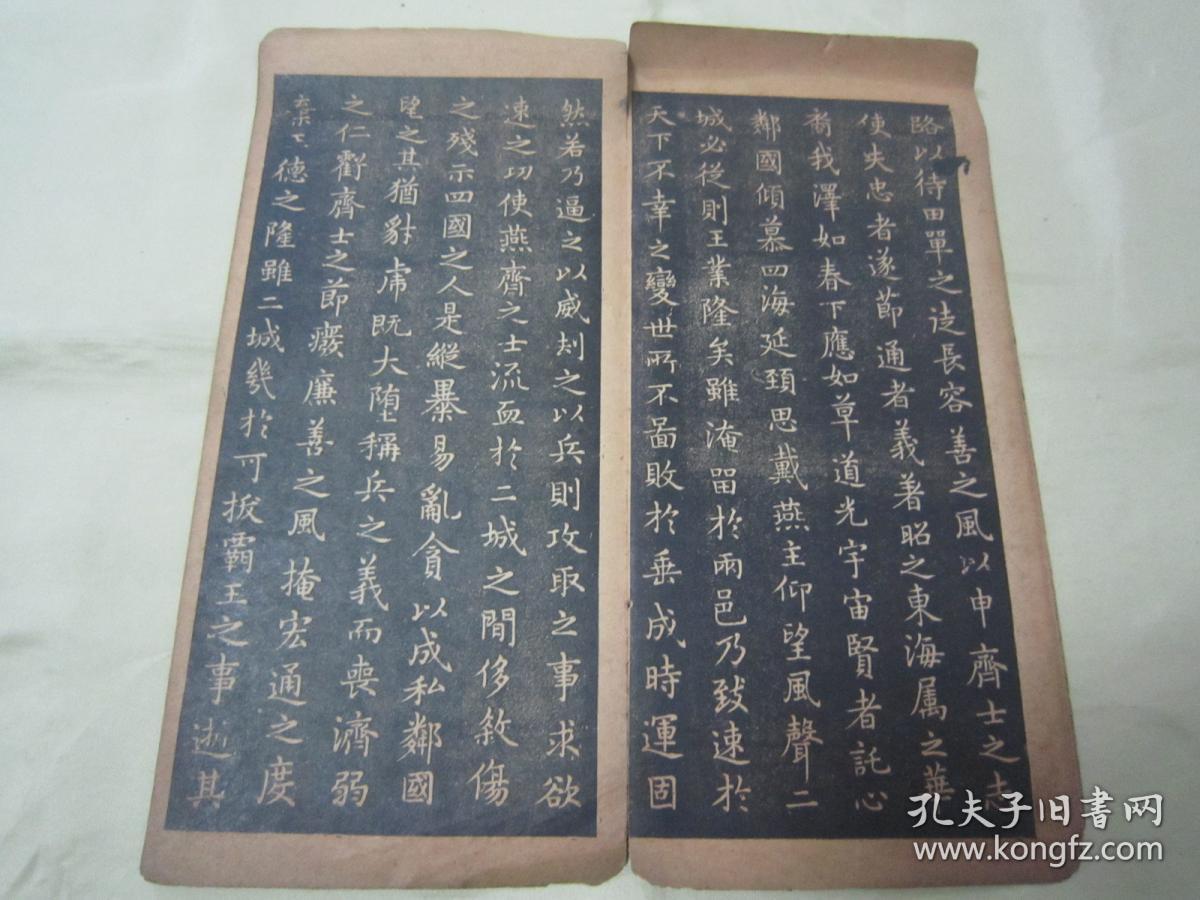 路以待田單之徒長容善之風以申齊士之志
使夫忠者遂節通者義著昭之東海属之華
裔我澤如春下應如草道光宇宙賢者託心
鄰國傾慕四海延頚思戴燕主仰望風聲二
城必從則王業隆矣雖淹留於兩邑乃致速於
天下不幸之變世所不啚敗於垂成時運固
然若乃逼之以威刼之以兵則攻取之事求欲
速之功使燕齊之士流血於二城之閒侈敘傷
之殘示四國之人是縱暴易亂貪以成私鄰國
望之其猶豺虎既大堕稱兵之義而喪濟弱
之仁虧齊士之節癈廉善之風掩宏通之度
棄王德之隆雖二城幾於可拔霸王之事逝其
孔夫子旧书网
www.kongfz.com